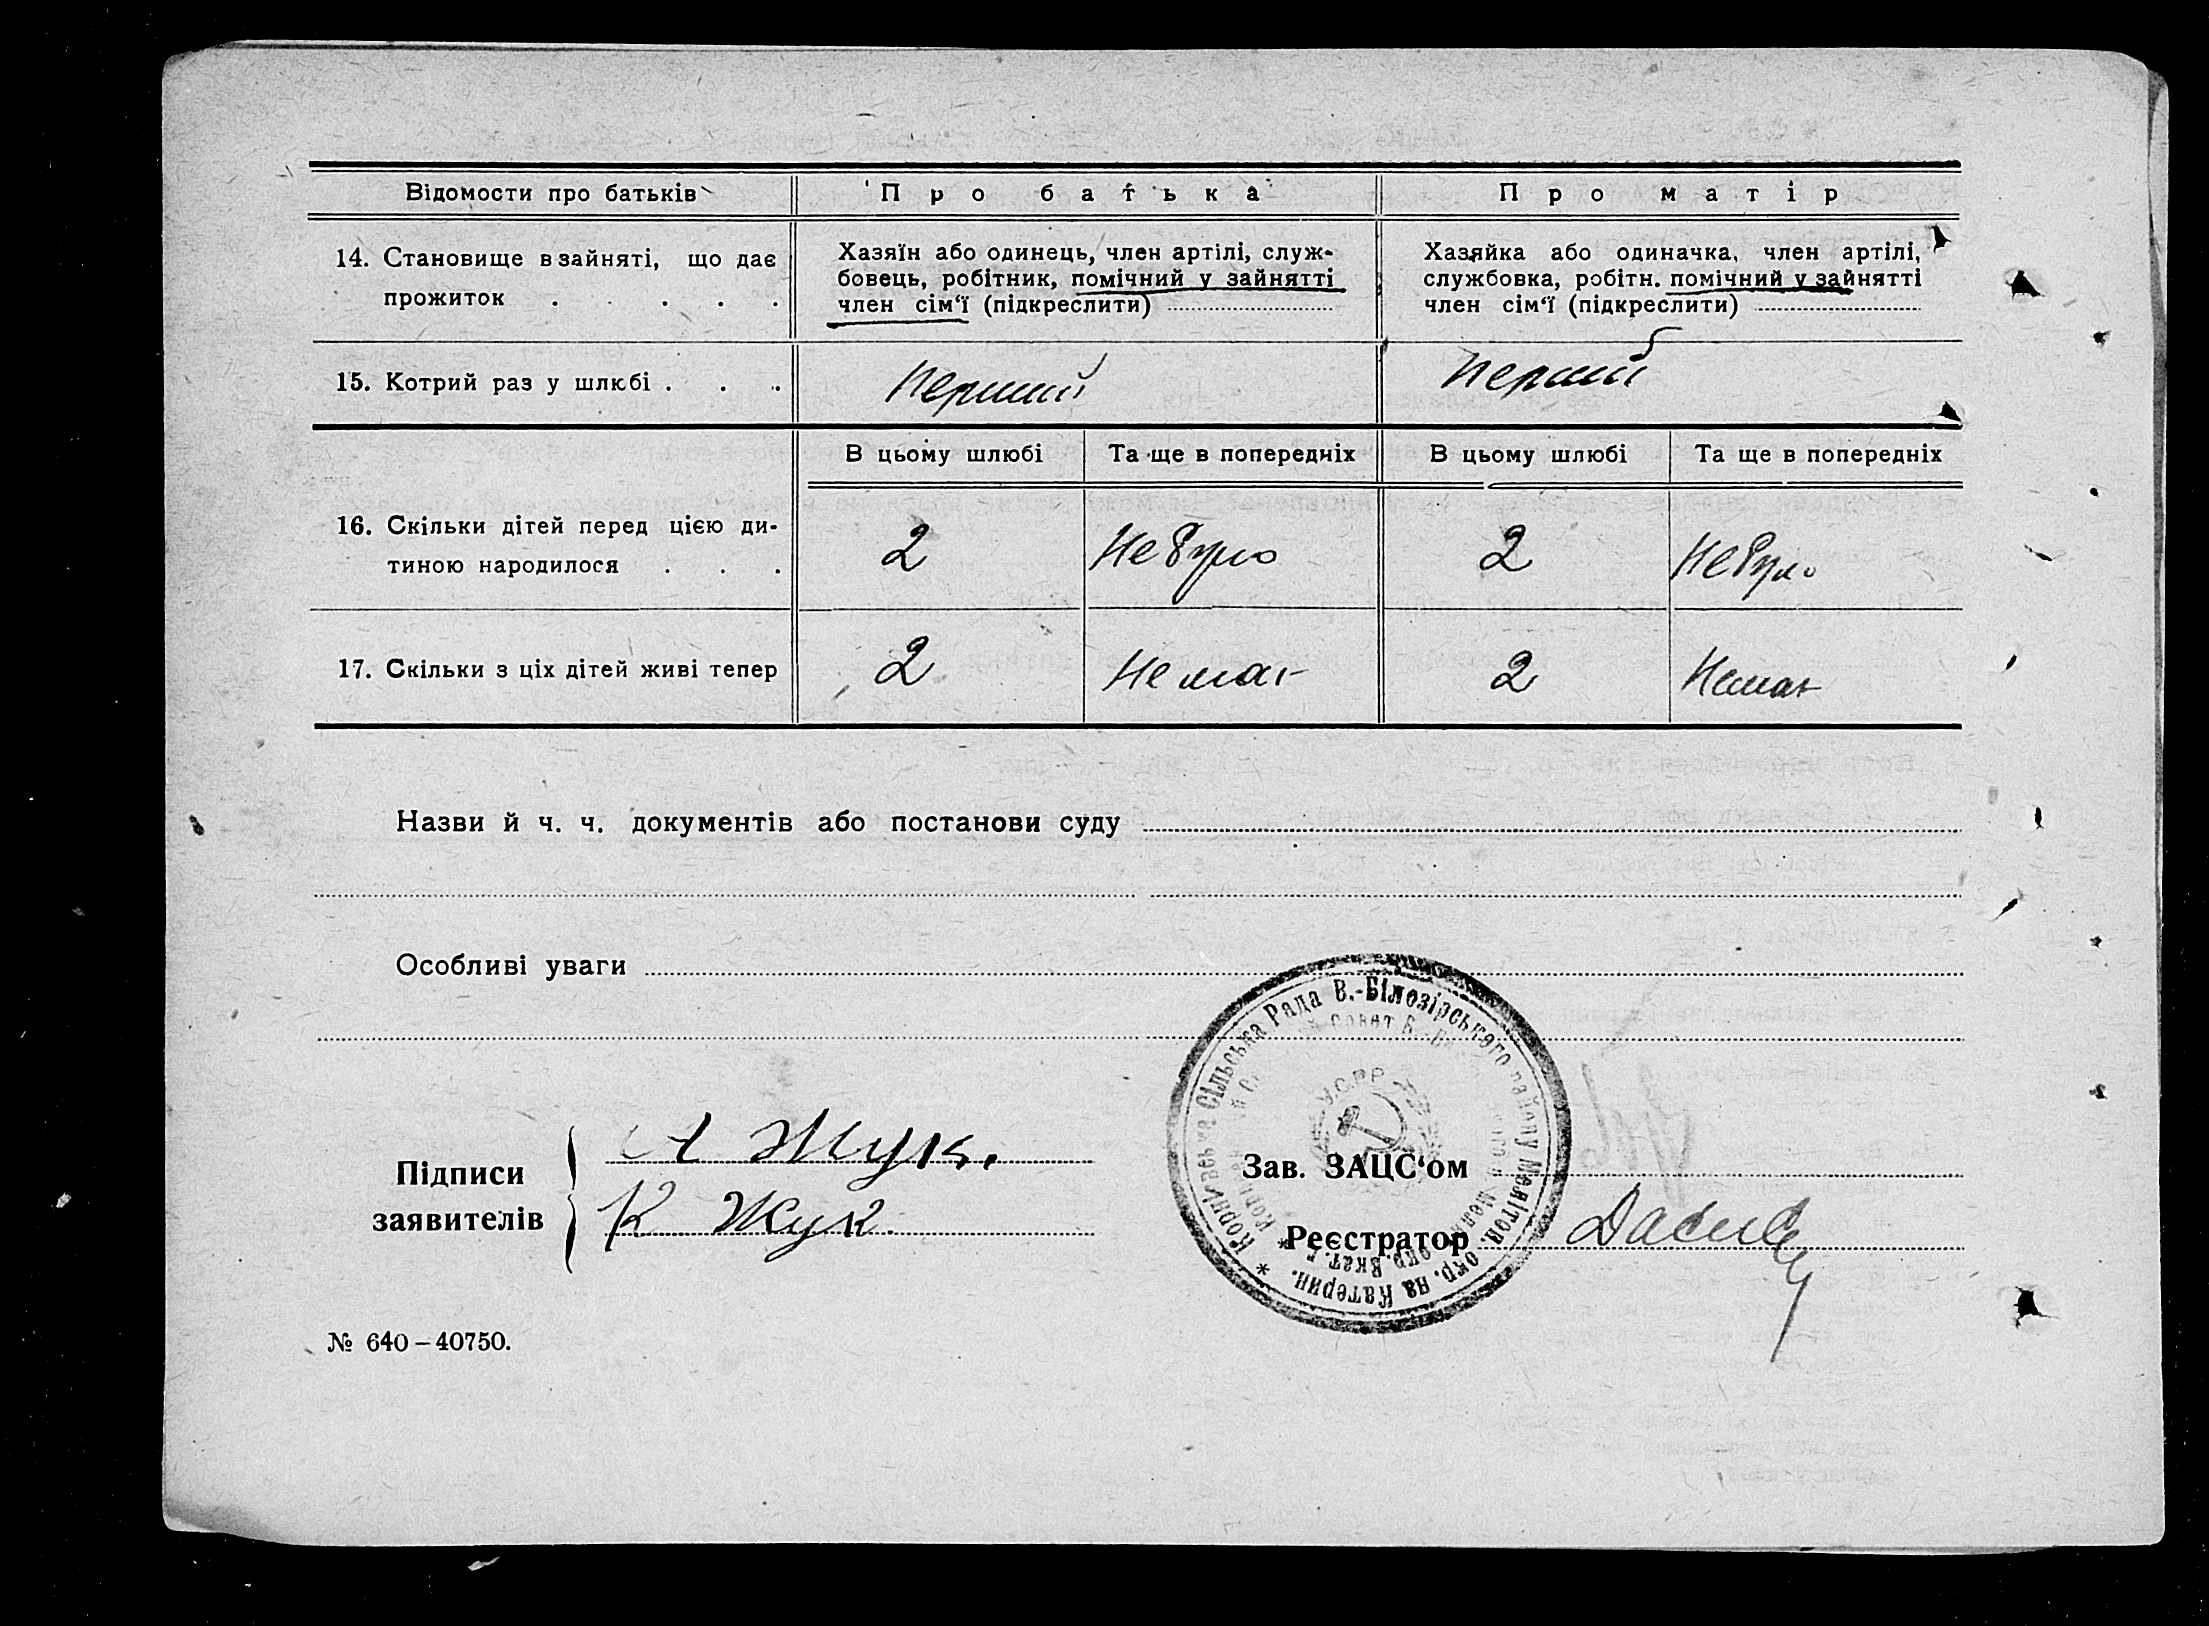 Відомости про батьків
Про батька
Про матір
14. Становище в зайняті, що дає
прожиток . . . .
Хазяїн або одинець, член артілі, служ-
бовець, робітник, помічний у зайнятті
член сім‘ї (підкреслити)
Хазяйка або одиначка, член артілі,
службовка, робітн. помічний у зайнятті
член сім‘ї (підкреслити)
15. Котрий раз у шлюбі . . .
Перший
Перший
В цьому шлюбі
Та ще в попередніх
В цьому шлюбі
Та ще в попередніх
16. Скільки дітей перед цією ди-
тиною народилося . . .
2
Не було
2
Не було
17. Скільки з ціх дітей живі тепер
2
Немає
2
Немає
Назви й ч. ч. документів або постанови суду
Особливі уваги
Підписи
заявителів
А Жук.
К Жук.
Зав. ЗАЦС‘ом
Реєстратор
Сільська Рада В.-Білозірського району Мелітоп. окр. на Катерин.
У.С.Р.Р.
№ 640–40750.